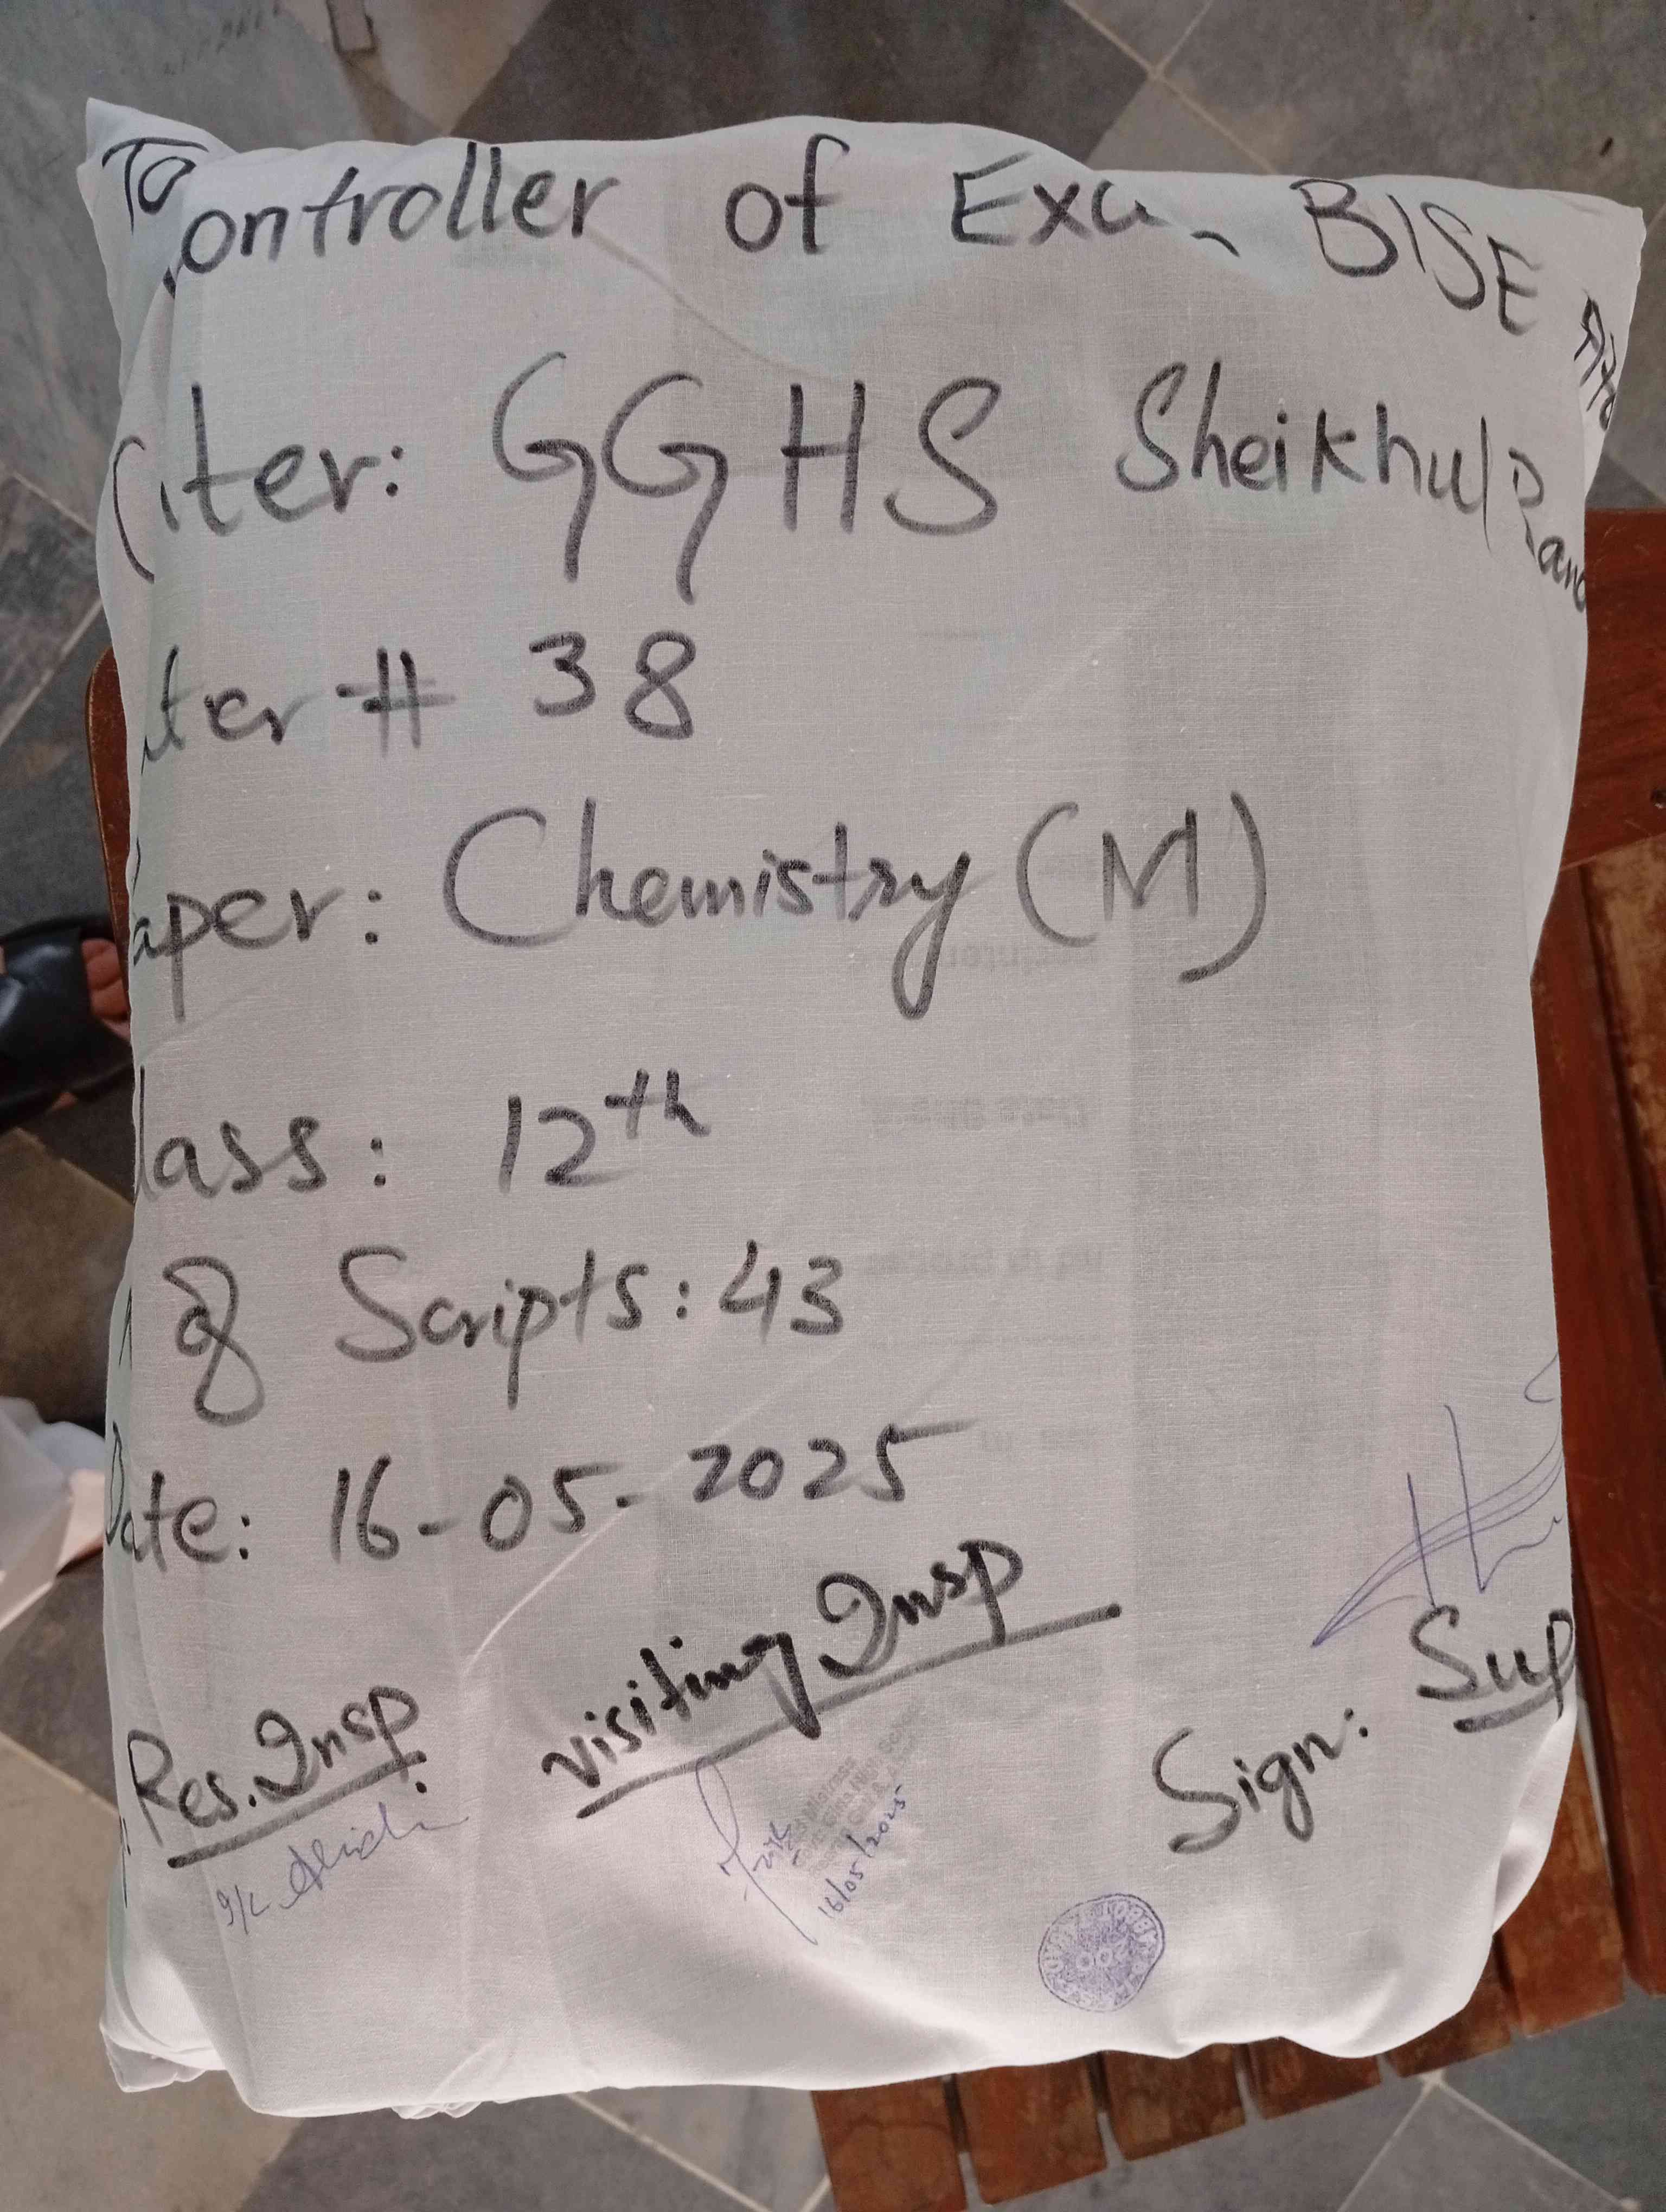 To
Controller of Exam BISE
ter: GGHS Sheikhul
ter # 38
aper: Chemistry (M)
lass: 12th
of Scripts: 43
Date: 16-05-2025
Res. Insp
Visiting Insp
Sign: Sup
16/05/2025